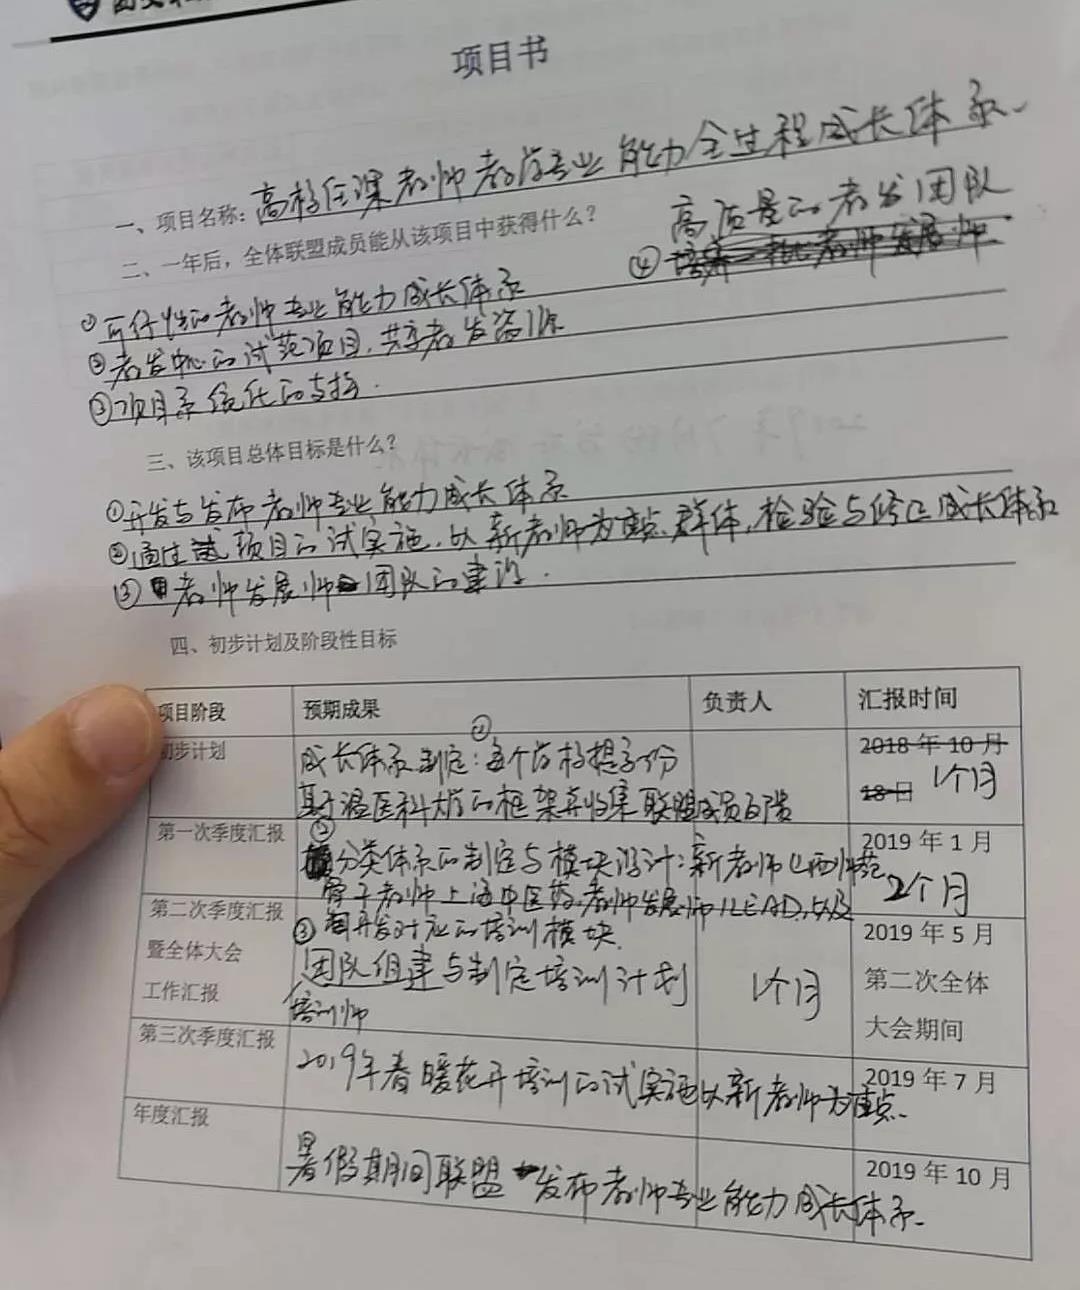 项目书
一、项目名称：高校任课教师教学专业能力全过程成长体系.
二、一年后，全体联盟成员能从该项目中获得什么？
高质量的教发团队
④
①可行性的教师专业能力成长体系
②教发中心的试范项目，共享教发资源
③项目系统化的支持.
三、该项目总体目标是什么？
①开发与发布教师专业能力成长体系
②通过项目的试实施，以新教师为重点群体，检验与修正成长体系
③教师发展师团队的建设.
四、初步计划及阶段性目标
项目阶段 预期成果 负责人 汇报时间
初步计划 ① 成长体系制定：每个学校提子份 2018 年 10 月
基于温医科大的框架并收集联盟成员的 18 日 1个月
第一次季度汇报 ② 分类体系的制定与模块设计：新教师 2019 年 1 月
骨干教师上海中医药，教师发展师 2个月
第二次季度汇报 ③ 开发对应的培训模块. 2019 年 5 月
暨全体大会 团队组建与制定培训计划 1个月 第二次全体
工作汇报 培训师 大会期间
第三次季度汇报 2019年春暖花开培训的试实施以新教师为重点. 2019 年 7 月
年度汇报 暑假期间联盟发布教师专业能力成长体系. 2019 年 10 月